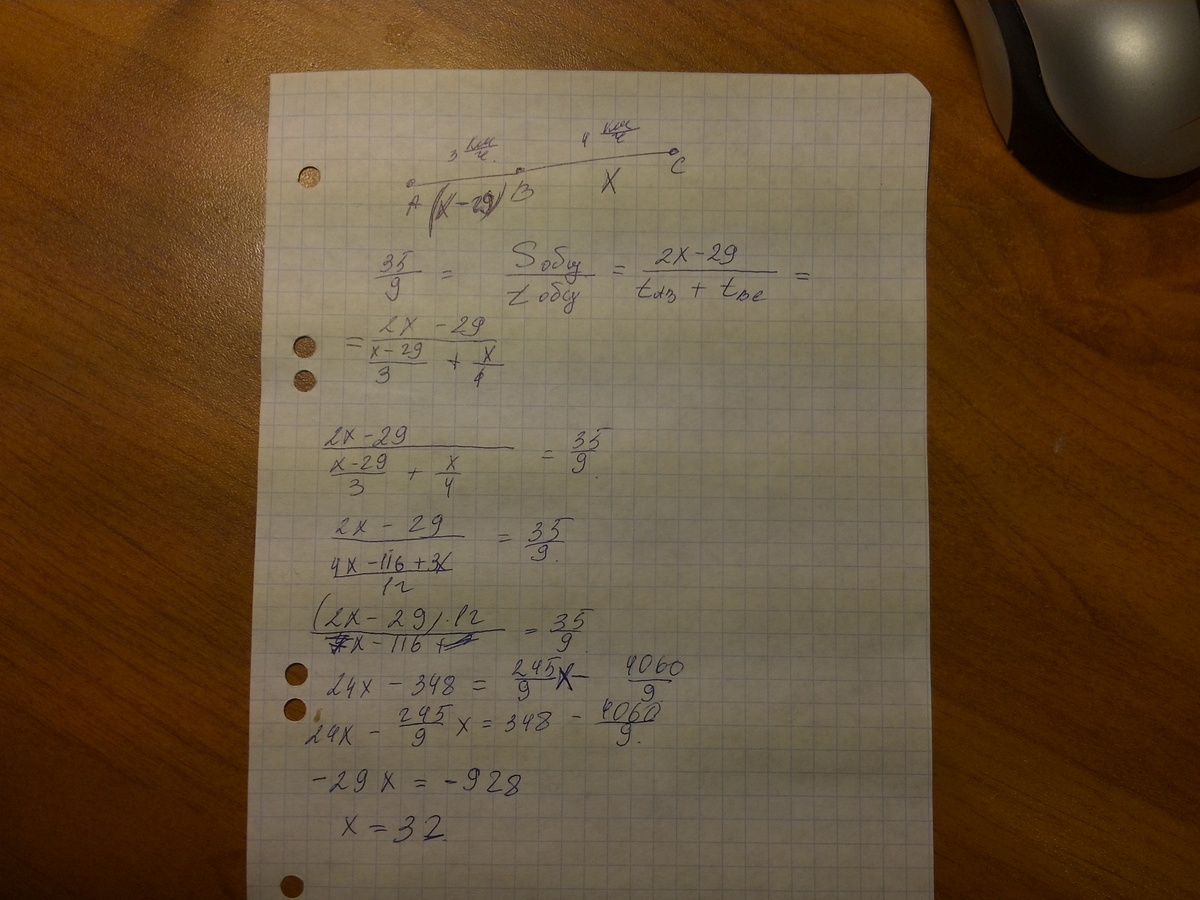 3 км/ч 4 км/ч
A (x-29) B x C
35/9 = Sобщ/tобщ = (2x-29)/(tAB + tBC) =
= (2x - 29)/((x-29)/3 + x/4)
(2x-29)/((x-29)/3 + x/4) = 35/9.
(2x - 29)/((4x-116+3x)/12) = 35/9.
((2x-29)·12)/(7x-116) = 35/9.
24x - 348 = 245/9 x - 4060/9
24x - 245/9 x = 348 - 4060/9.
-29x = -928
x = 32.